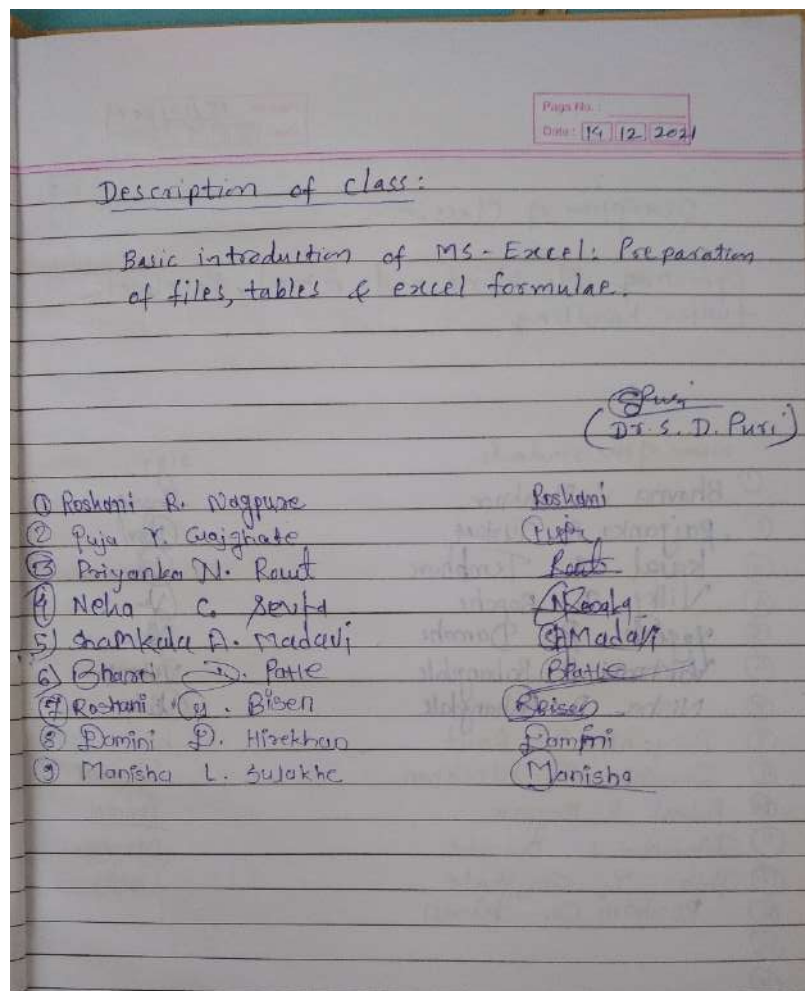 Page No. :
Date : 14 12 2021
Description of class :
Basic introduction of MS-Excel: Preparation
of files, tables & excel formulae.
(Dr. S. D. Puri)
① Roshani R. Nagpure Roshani
② Puja Y. Gajghate
③ Priyanka N. Raut Raut
④ Neha C.
5) Shamkala A. Madavi Madavi
6) Bharti D. Patle BPatle
⑦ Roshani Y. Bisen RBisen
⑧ Damini D. Hirekhan Damini
⑨ Manisha L. Sulakhe Manisha